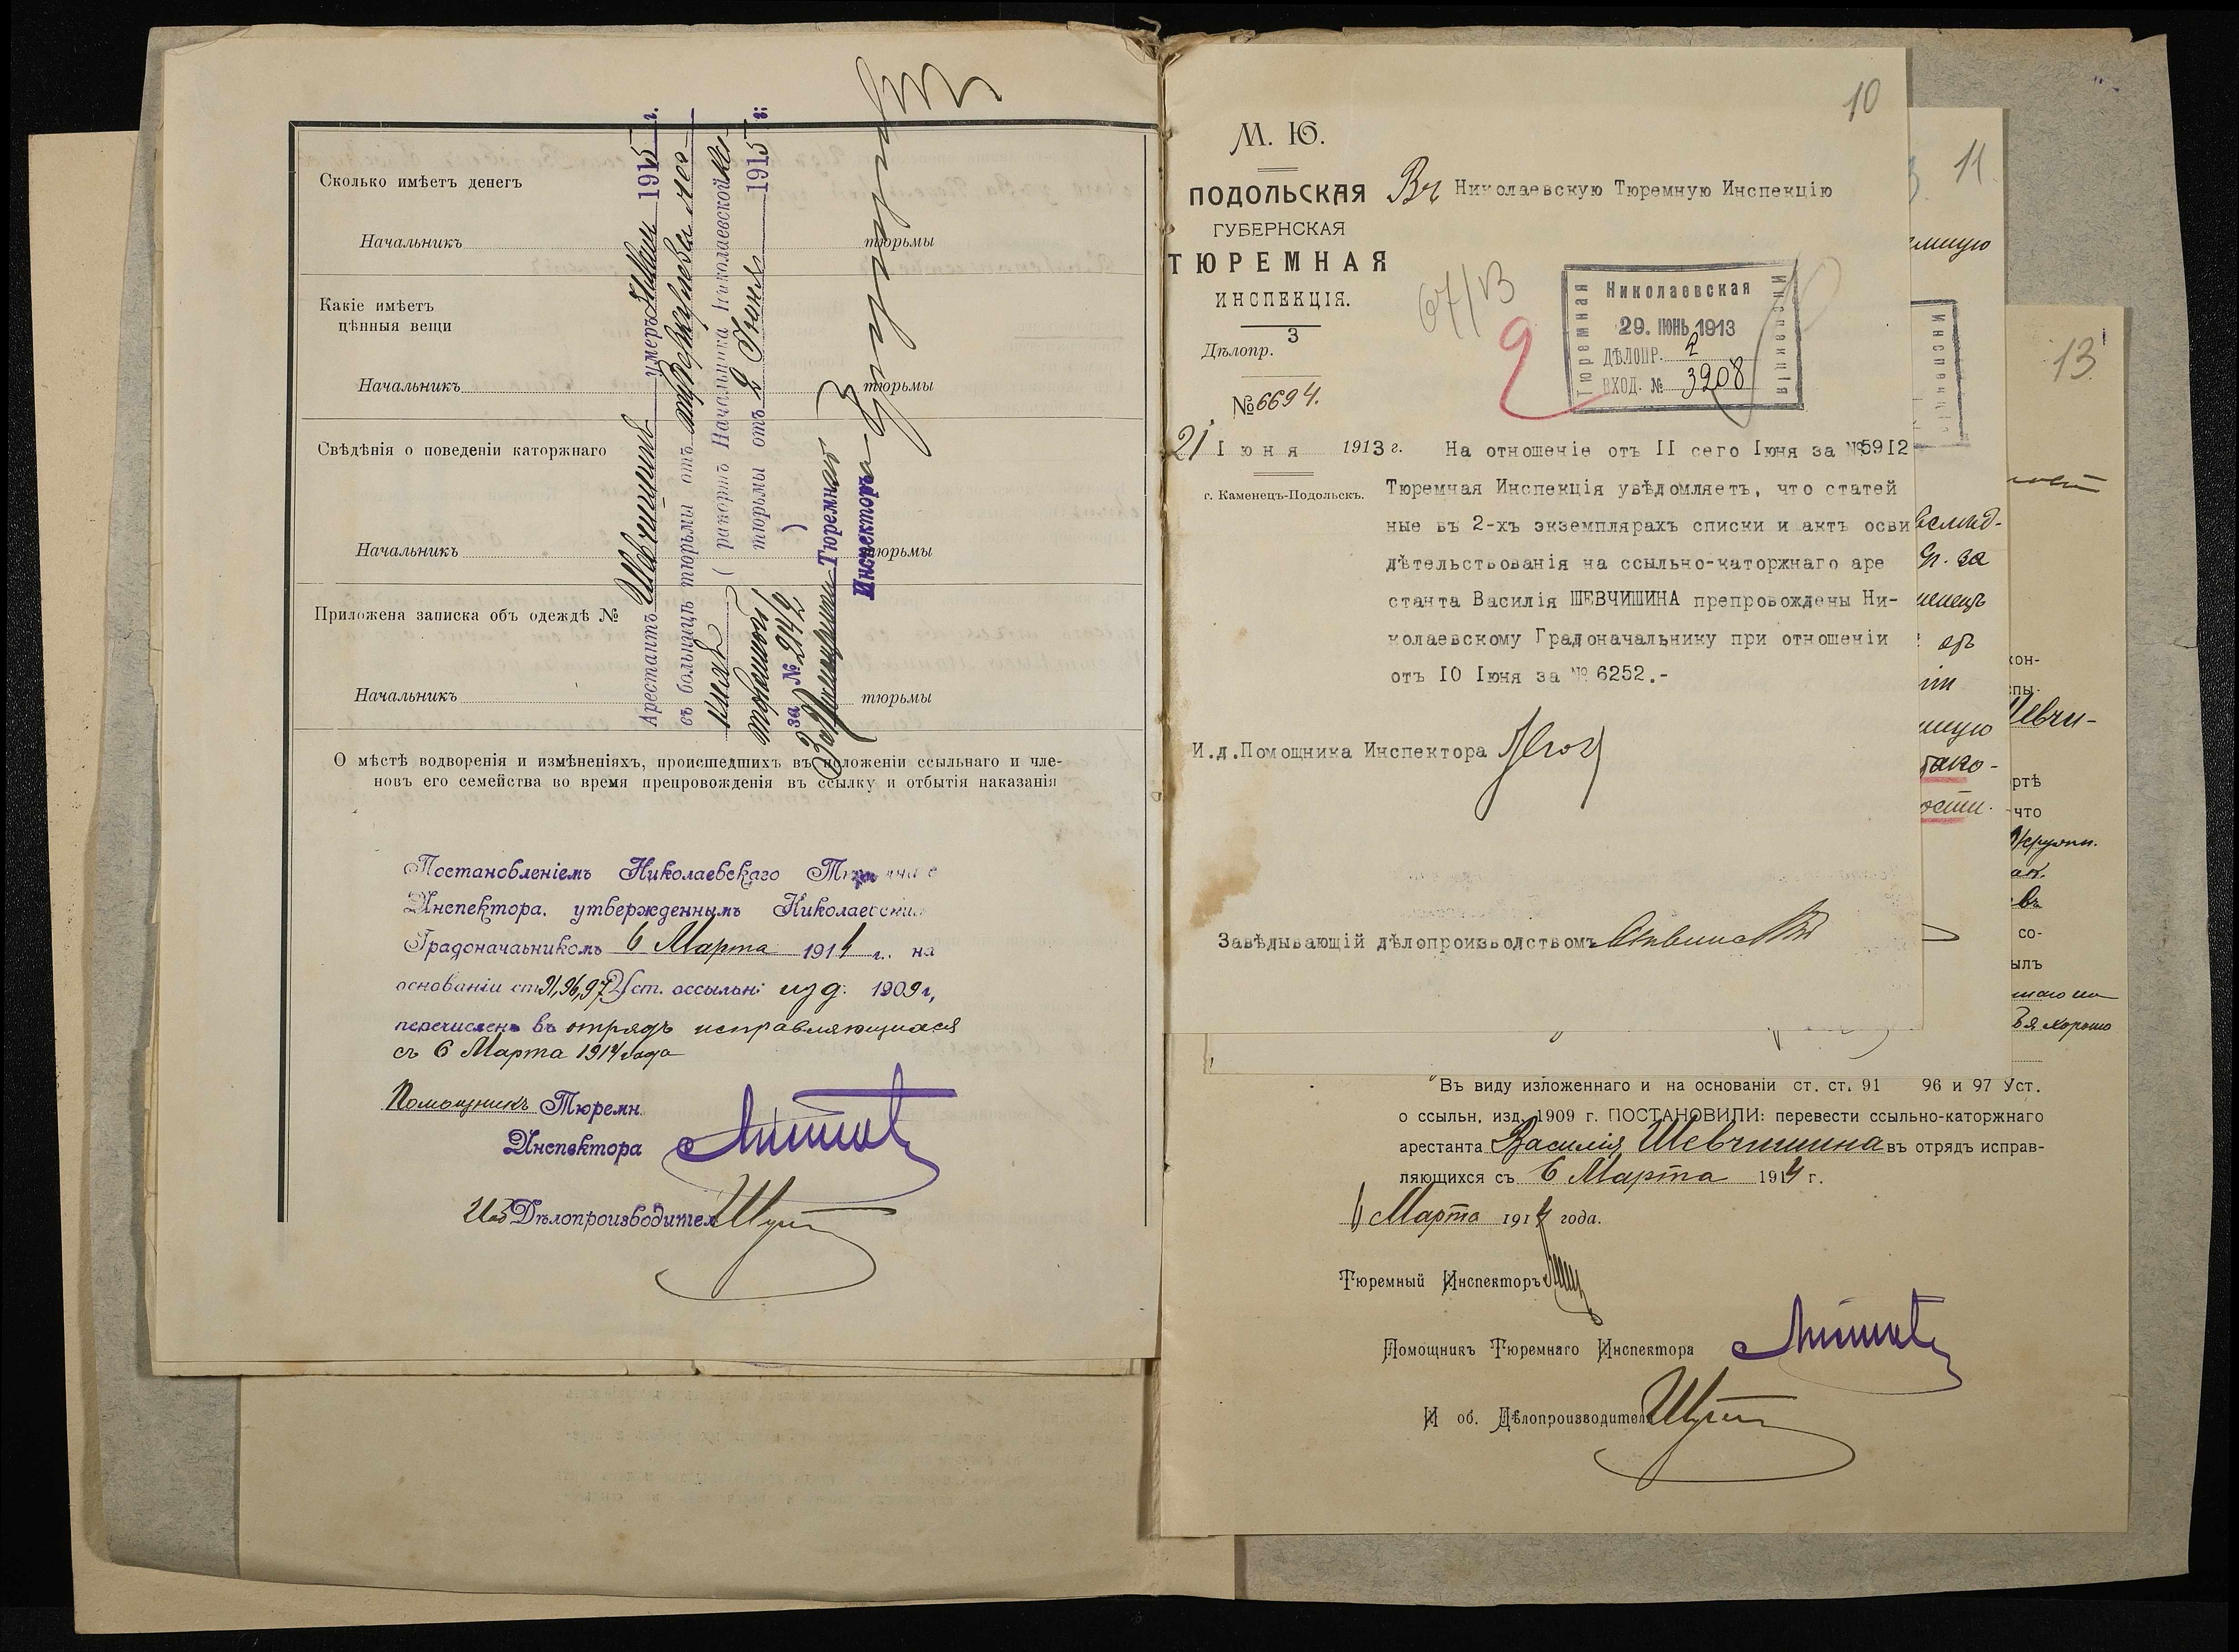 Сколько имѣетъ денегъ
Начальникъ тюрьмы
Какіе имѣетъ
цѣнныя вещи
Начальникъ тюрьмы
Свѣдѣнія о поведеніи каторжнаго
Начальникъ тюрьмы
Приложена записка объ одеждѣ №
Начальникъ тюрьмы
Арестантъ Шевчишинъ умеръ 1915 г.
съ больницѣ тюрьмы отъ туберкулеза лег-
кихъ ( рапортъ Начальника Николаевской
тюрьмы отъ 2 Іюня 1915 г:
за № 2442 )
Тюремнаго
Инспектора
О мѣстѣ водворенія и измѣненіяхъ, происшедшихъ въ положеніи ссыльнаго и чле-
новъ его семейства во время препровожденія въ ссылку и отбытія наказанія
Постановленіемъ Николаевскаго
Инспектора, утвержденнымъ
Градоначаьникомъ 6 Марта 1914 г. на
основаніи ст 91,96,97 Уст. оссыльн: изд. 1909 г,
перечисленъ въ отрядъ исправляющихся
съ 6 Марта 1914 года
Помощникъ Тюремн.
Инспектора
Иоб Дѣлопроизводител
10
М. Ю.
ПОДОЛЬСКАЯ
ГУБЕРНСКАЯ
ТЮРЕМНАЯ
ИНСПЕКЦІЯ.
Дѣлопр. 3
№ 6694.
21 Іюня 1913 г.
г. Каменецъ-Подольскъ.
Въ Николаевскую Тюремную Инспекцію
67/13
Николаевская
Тюремная
Инспекція
29. ІЮНЬ 1913
ДѢЛОПР. 2
ВХОД. № 3908
На отношеніе отъ II сего Іюня за №5912
Тюремная Инспекція увѣдомляетъ, что статей
ные въ 2-хъ экземплярахъ списки и актъ осви
дѣтельствованія на ссыльно-каторжнаго аре
станта Василія ШЕВЧИШИНА препровождены Ни-
колаевскому Градоначальнику при отношеніи
отъ IO Іюня за № 6252.-
И.д.Помощника Инспектора
Завѣдывающій дѣлопроизводствомъ
11
13
Въ виду изложеннаго и на основаніи ст. ст. 91 96 и 97 Уст.
о ссыльн, изд. 1909 г. ПОСТАНОВИЛИ: перевести ссыльно-каторжнаго
арестанта Василія Шевчишина въ отрядъ исправ-
ляющихся съ 6 Марта 1914 г.
6 Марта 1914 года.
Тюремный Инспекторъ
Помощникъ Тюремнаго Инспектора
И об. Дѣлопроизводителя